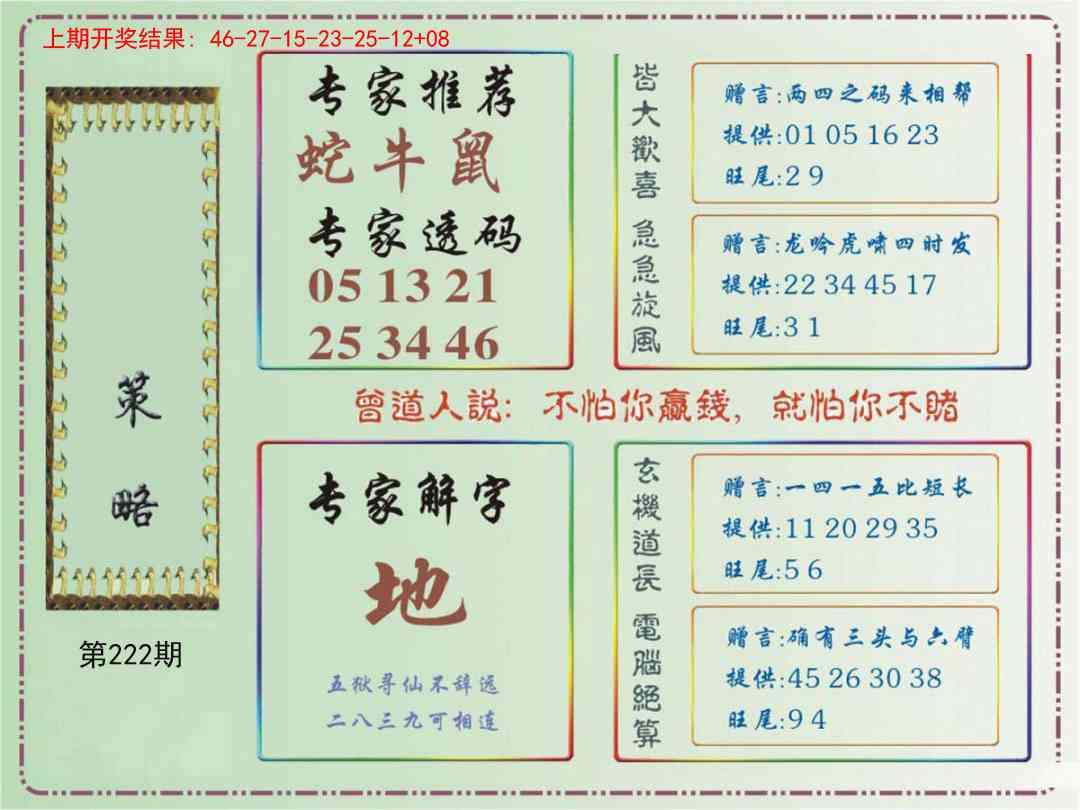 上期开奖结果: 46-27-15-23-25-12+08
策略
第222期
专家推荐
蛇牛鼠
专家透码
05 13 21
25 34 46
皆大歡喜
赠言:两四之码来相帮
提供:01 05 16 23
旺尾:2 9
急急旋風
赠言:龙吟虎啸四时发
提供:22 34 45 17
旺尾:3 1
曾道人説: 不怕你贏錢, 就怕你不賭
专家解字
地
五狱寻仙不辞远
二八三九可相连
玄機道長
赠言:一四一五比短长
提供:11 20 29 35
旺尾:5 6
電腦絕算
赠言:确有三头与六臂
提供:45 26 30 38
旺尾:9 4